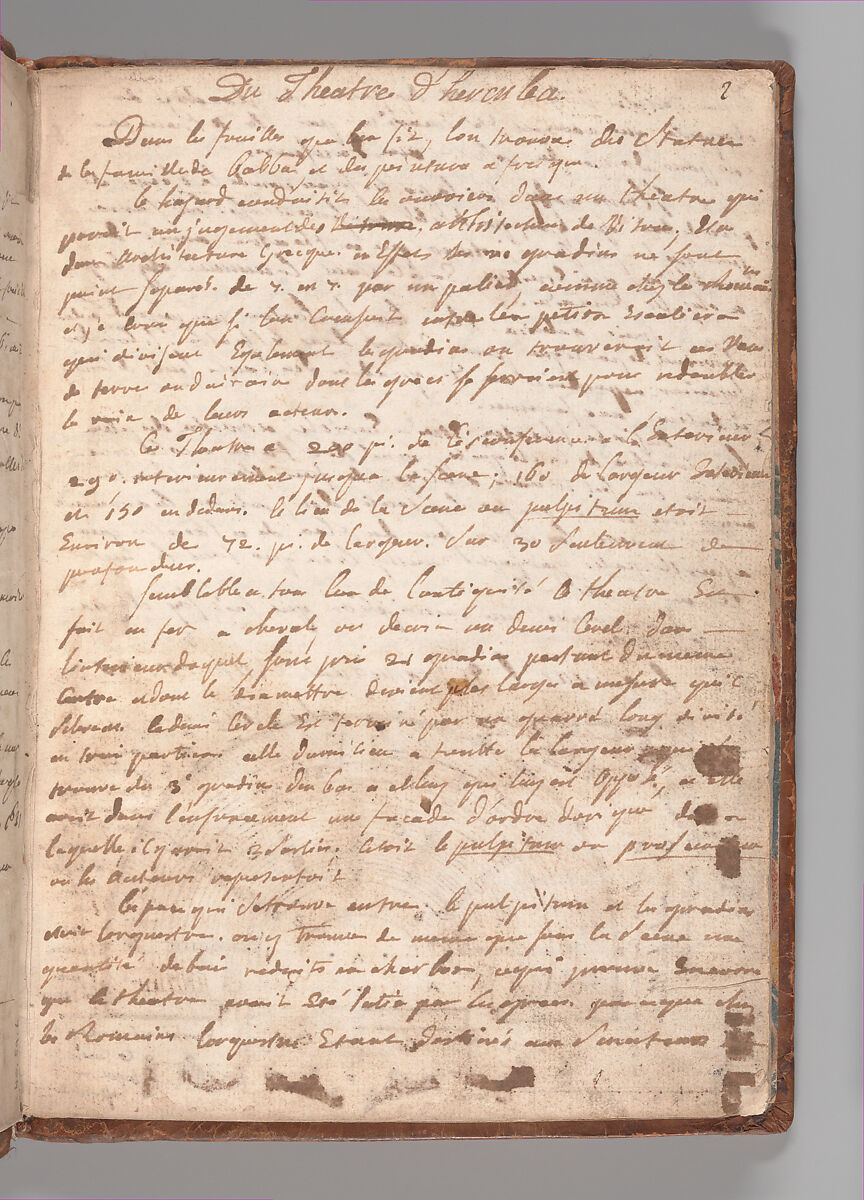 Du Theatre d'herculea. 2
Dans les fouilles que l'on fit, l'on trouva des Statues
de la famille de Balba et des peintura a fresque.
le hazard conduisit les ouvriers dans un theatre qui
paroit au jugement des architectes de Est
dans architecture Grecque. en Effet les gradins ne sont
point separés de 7. en 7. par un palier comme chez les Romains
et que si l'on les petits Escaliers
qui divisent Egalement les gradins on trouveroit ces Vases
de terre ou d'airain dont les grecs se servoient pour redoubler
la voix de leurs acteurs.
Ce Theatre a pi. de Circonference a l'Exterieur
290. interieurement jusqua la scene, 160 de largeur
et 150 en dedans. le lieu de la Scene ou pulpitum etoit
Environ de 72. pi. de largeur. Sur 30 Seulement de
profondeur.
Semblable a tous ceux de l'antiquité Ce theatre Est
fait en fer a cheval, ou decrit un demi Cercle dans
l'interieur duquel sont pris 21 gradins partant du meme
Centre et dont le diametre devient plus large a mesure qu'il
S'eleve. le demi Cercle Est terminé par un quarré long divisé
en trois parties celle du milieu a la largeur
trouve du 3e gradin d'en bas a celuy qui luy est opposé, et elle
avoit dans l'enfoncement une facade d'ordre dorique dans
laquelle il y avoit 3 sorties. C'etoit le pulpitum ou proscenium
ou les Acteurs representoit
l'espace qui se trouve entre le pulpitum et les gradins
etoit l'orquestre. on y trouva de meme que sous la Scene une
quantité de bois reduits en charbon, ce qui prouve Encore
que le theatre avoit Eté batie par les grecs. parceque chez
les Romains l'orquestre Etant destinés aux Senateurs